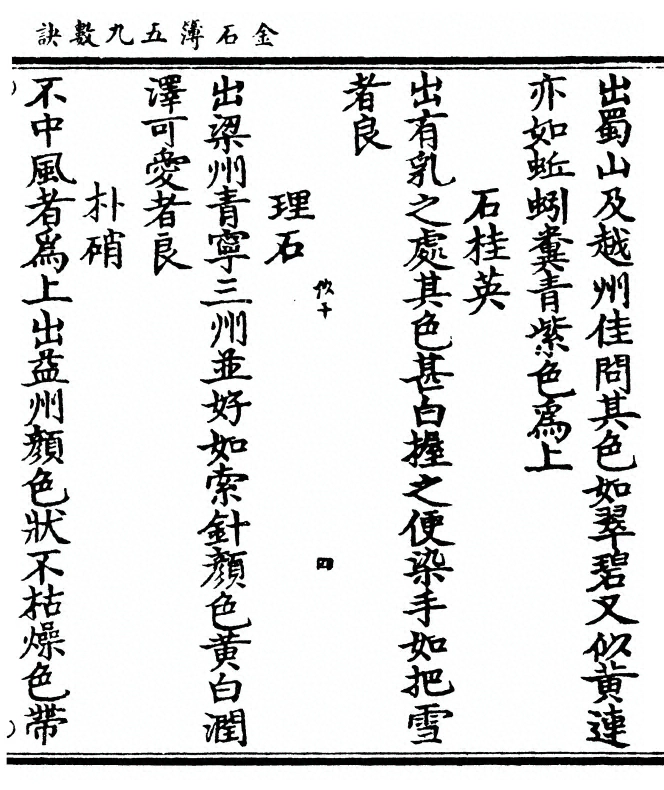 金石簿五九數訣
出蜀山及越州佳問其色如翠碧又似黃連
亦如蚯蚓糞青紫色爲上
石桂英
出有乳之處其色甚白握之便染手如把雪
者良
理石
似干
四
出梁州青寧三州並好如索針顏色黃白潤
澤可愛者良
朴硝
不中風者爲上出益州顏色狀不枯燥色帶